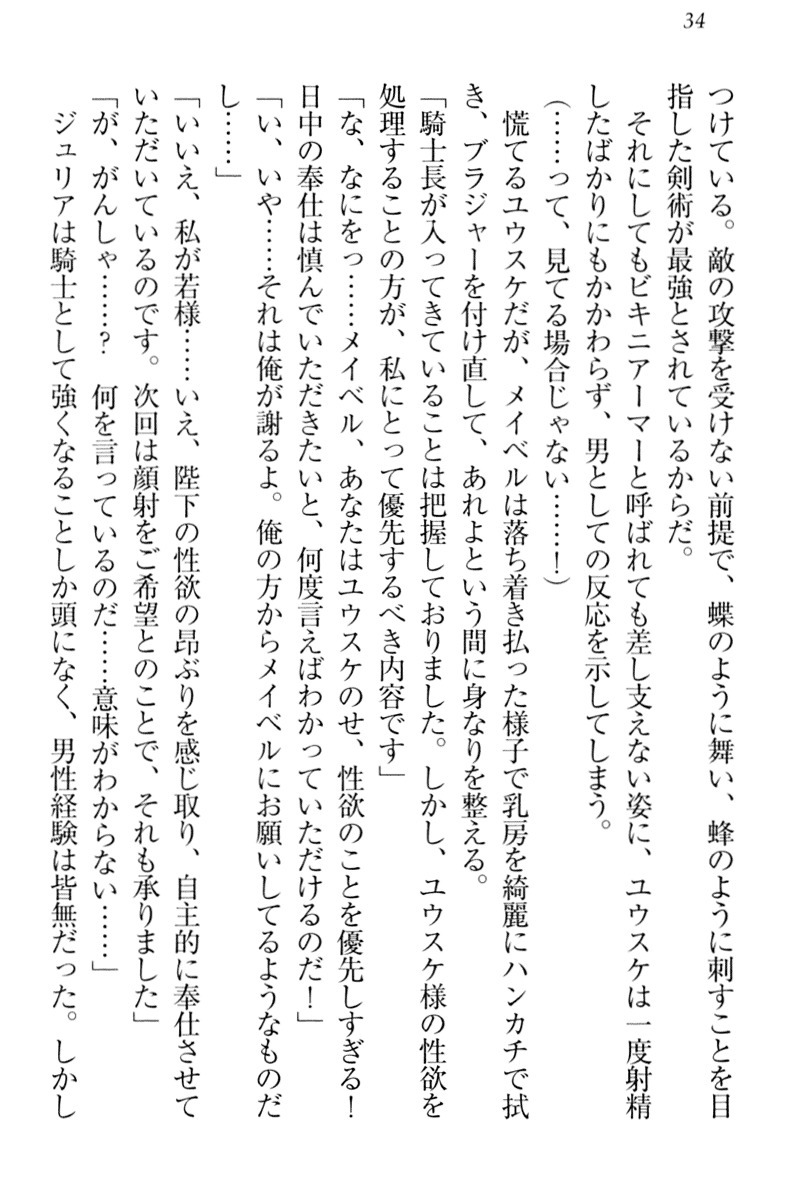 34
つけている。敵の攻撃を受けない前提で、蝶のように舞い、蜂のように刺すことを目
指した剣術が最強とされているからだ。
それにしてもビキニアーマーと呼ばれても差し支えない姿に、ユウスケは一度射精
したばかりにもかかわらず、男としての反応を示してしまう。
(……って、見てる場合じゃない……！)
慌てるユウスケだが、メイベルは落ち着き払った様子で乳房を綺麗にハンカチで拭
き、ブラジャーを付け直して、あれよという間に身なりを整える。
「騎士長が入ってきていることは把握しておりました。しかし、ユウスケ様の性欲を
処理することの方が、私にとって優先するべき内容です」
「な、なにをっ……メイベル、あなたはユウスケのせ、性欲のことを優先しすぎる！
日中の奉仕は慎んでいただきたいと、何度言えばわかっていただけるのだ！」
「い、いや……それは俺が謝るよ。俺の方からメイベルにお願いしてるようなものだ
し……」
「いいえ、私が若様……いえ、陛下の性欲の昂ぶりを感じ取り、自主的に奉仕させて
いただいているのです。次回は顔射をご希望とのことで、それも承りました」
「が、がんしゃ……？　何を言っているのだ……意味がわからない……」
ジュリアは騎士として強くなることしか頭になく、男性経験は皆無だった。しかし